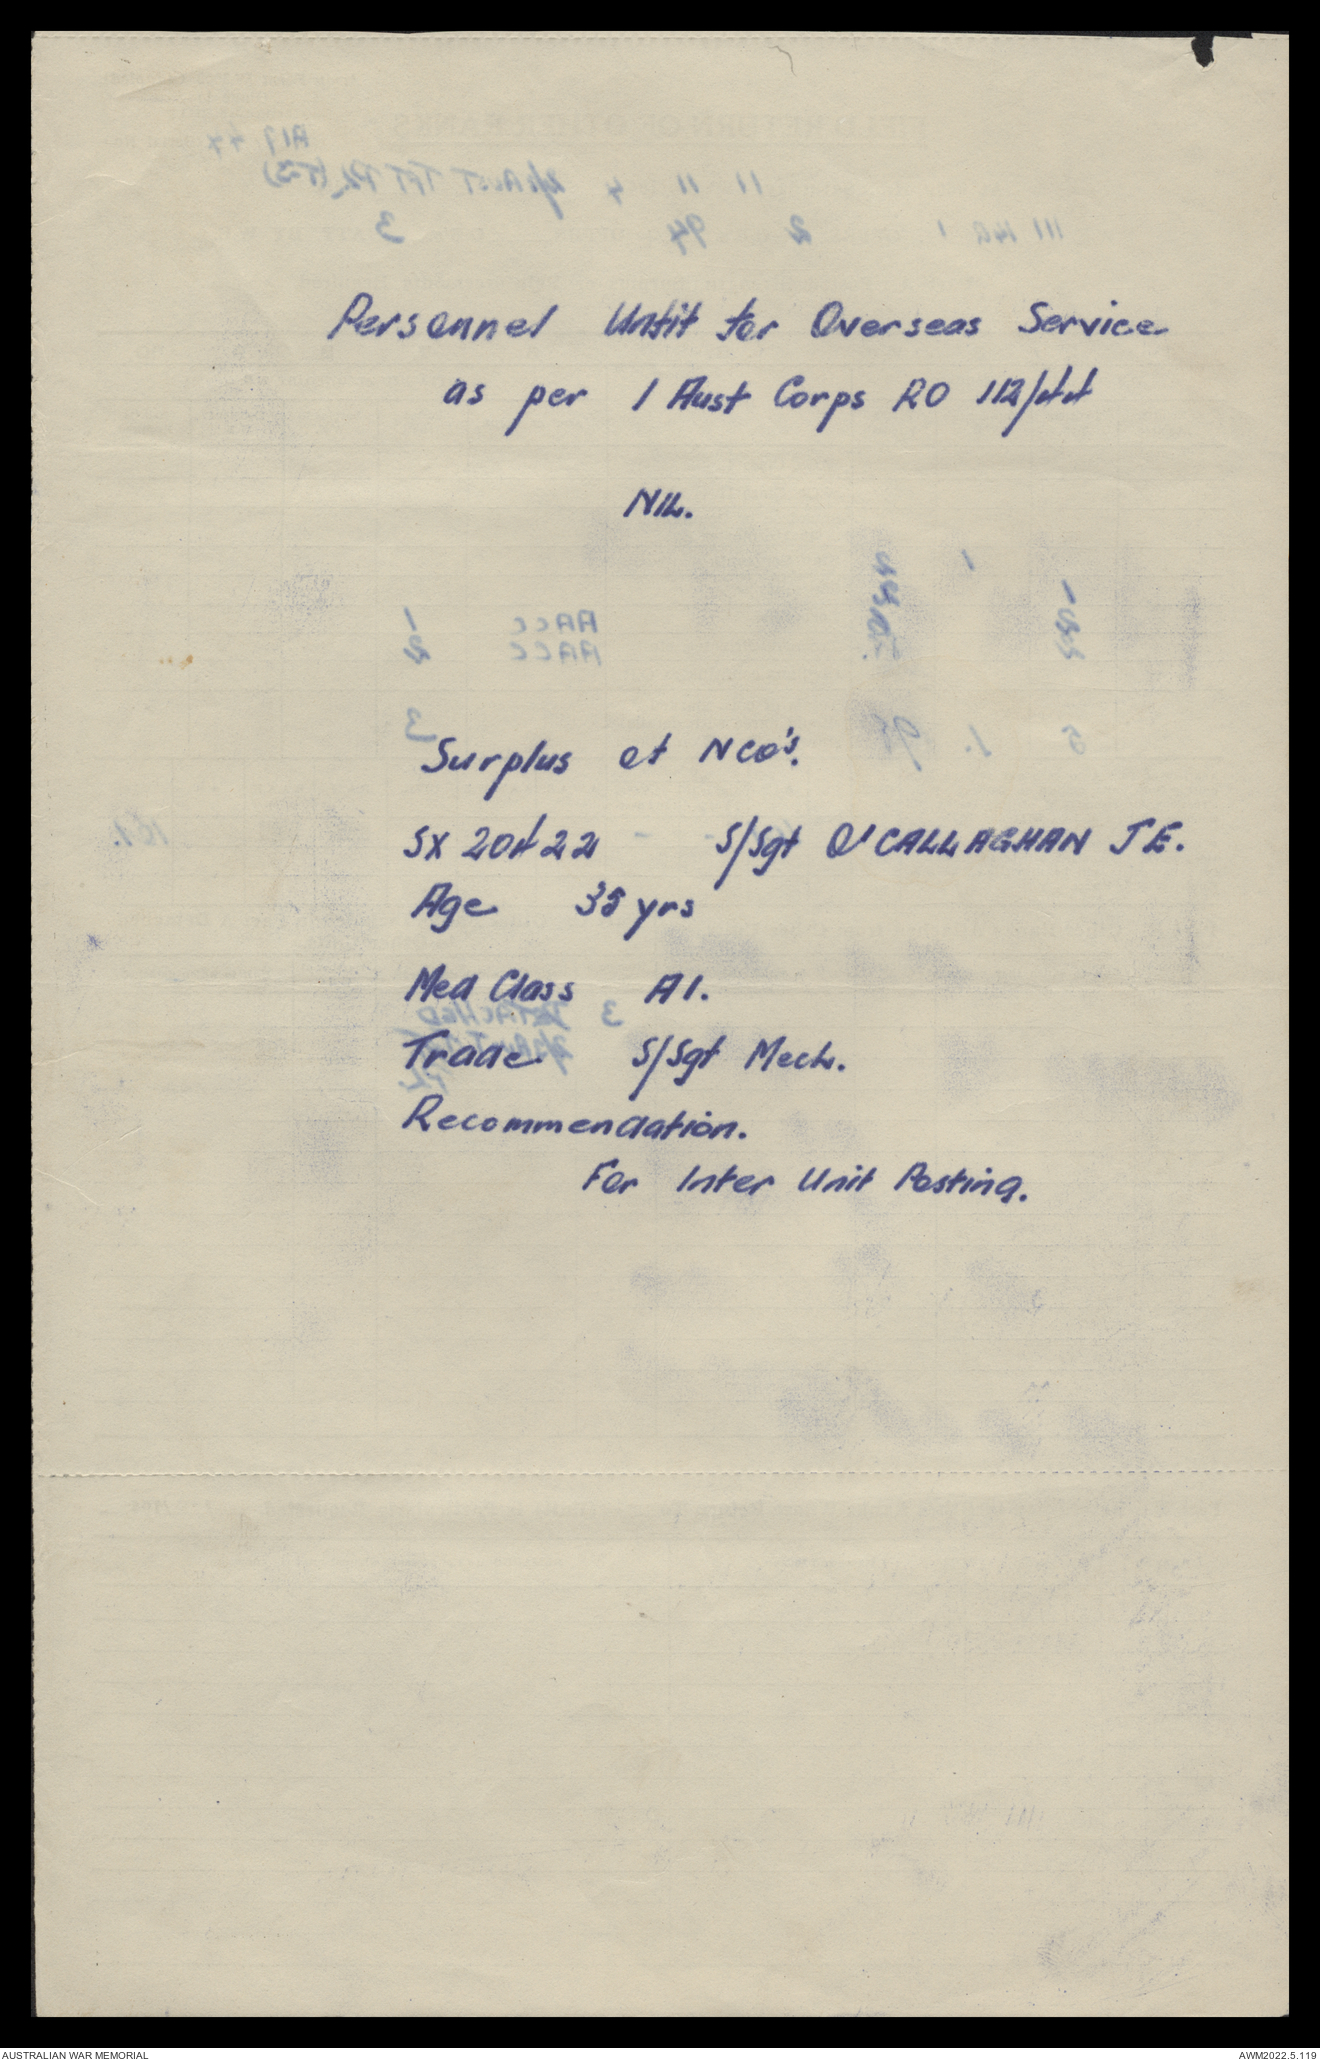 Personnel Unfit for Overseas Service
as per 1 Aust Corps RO 112/44
NIL.
Surplus of NCO's.
SX 20422 S/Sgt O'CALLAGHAN J E.
Age 35 yrs
Med Class A1.
Trade S/Sgt Mech.
Recommendation.
For Inter Unit Posting.
AUSTRALIAN WAR MEMORIAL
AWM2022.5.119